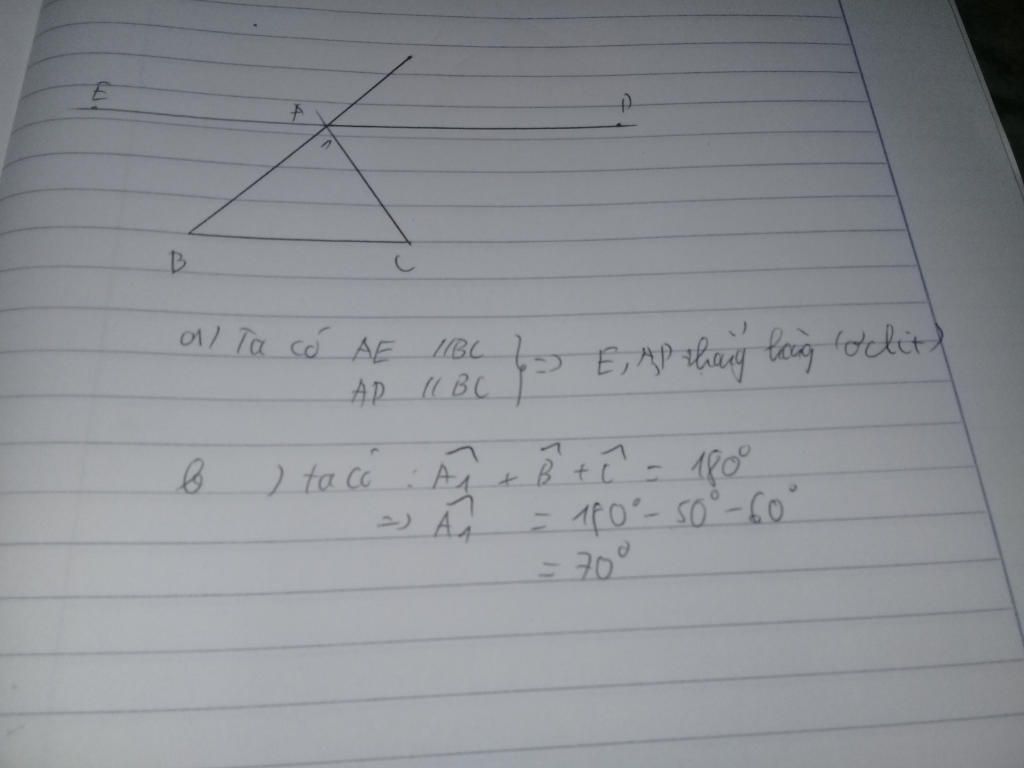 E
A
D
1
B
C
a) Ta có AE // BC
AD // BC
} => E, A, D thẳng hàng (ơclit)
b) ta có : Â1 + B̂ + Ĉ = 180°
=> Â1 = 180° - 50° - 60°
= 70°